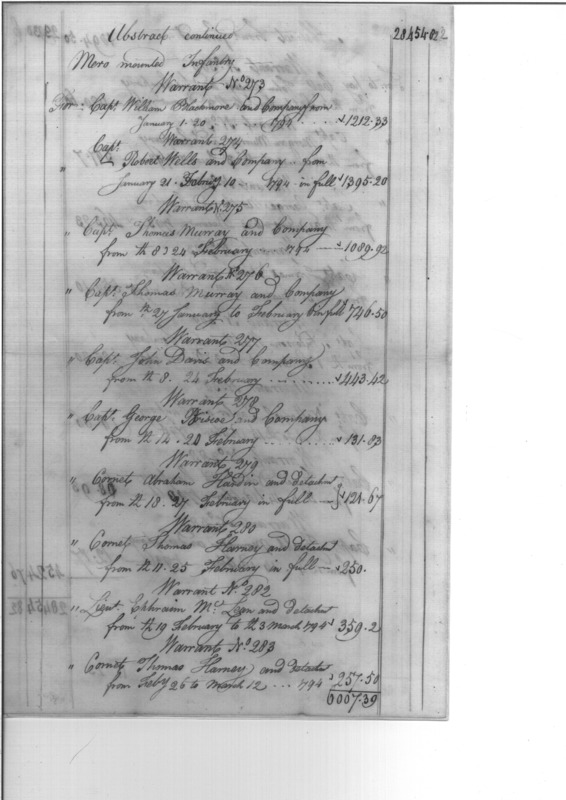 Abstract continued 20454.02
Mero mounted Infantry
Warrant No 273
For Capt. William Blackmore and Company from
January 1. 20 .. .. 794 .. 1212.33
Warrant 274
Capt.
" Robert Wells and Company .. from
January 21. Febry 10 794 in full 1395.20
Warrant No 275
" Capt. Thomas Murray and Company
from th 8 24 February .. 794 — 1089.92
Warrant No 276
" Capt. Thomas Murray and Company
from th 27 January to February in full 746.50
Warrant 277
" Capt. John Davis and Company
from th 8. 24 February .. .. .. 443.42
Warrant 278
" Capt. George and Company
from th 14. 20 February .. .. 131.83
Warrant 279
" Cornet Abraham Hardin and detachmt
from th 18. 27 February in full — 121.67
Warrant 280
" Cornet Thomas Harney and detachmt
from th 11. 25 February in full — 250.
Warrant No. 282
" Lieut. Ephraim McLean and detachmt
from th 19 February to th 3 March 794 359.2
Warrant No. 283
" Cornet Thomas Harney and detachmt
from Feby 26 to March 12 ... 794 257.50
6007.39